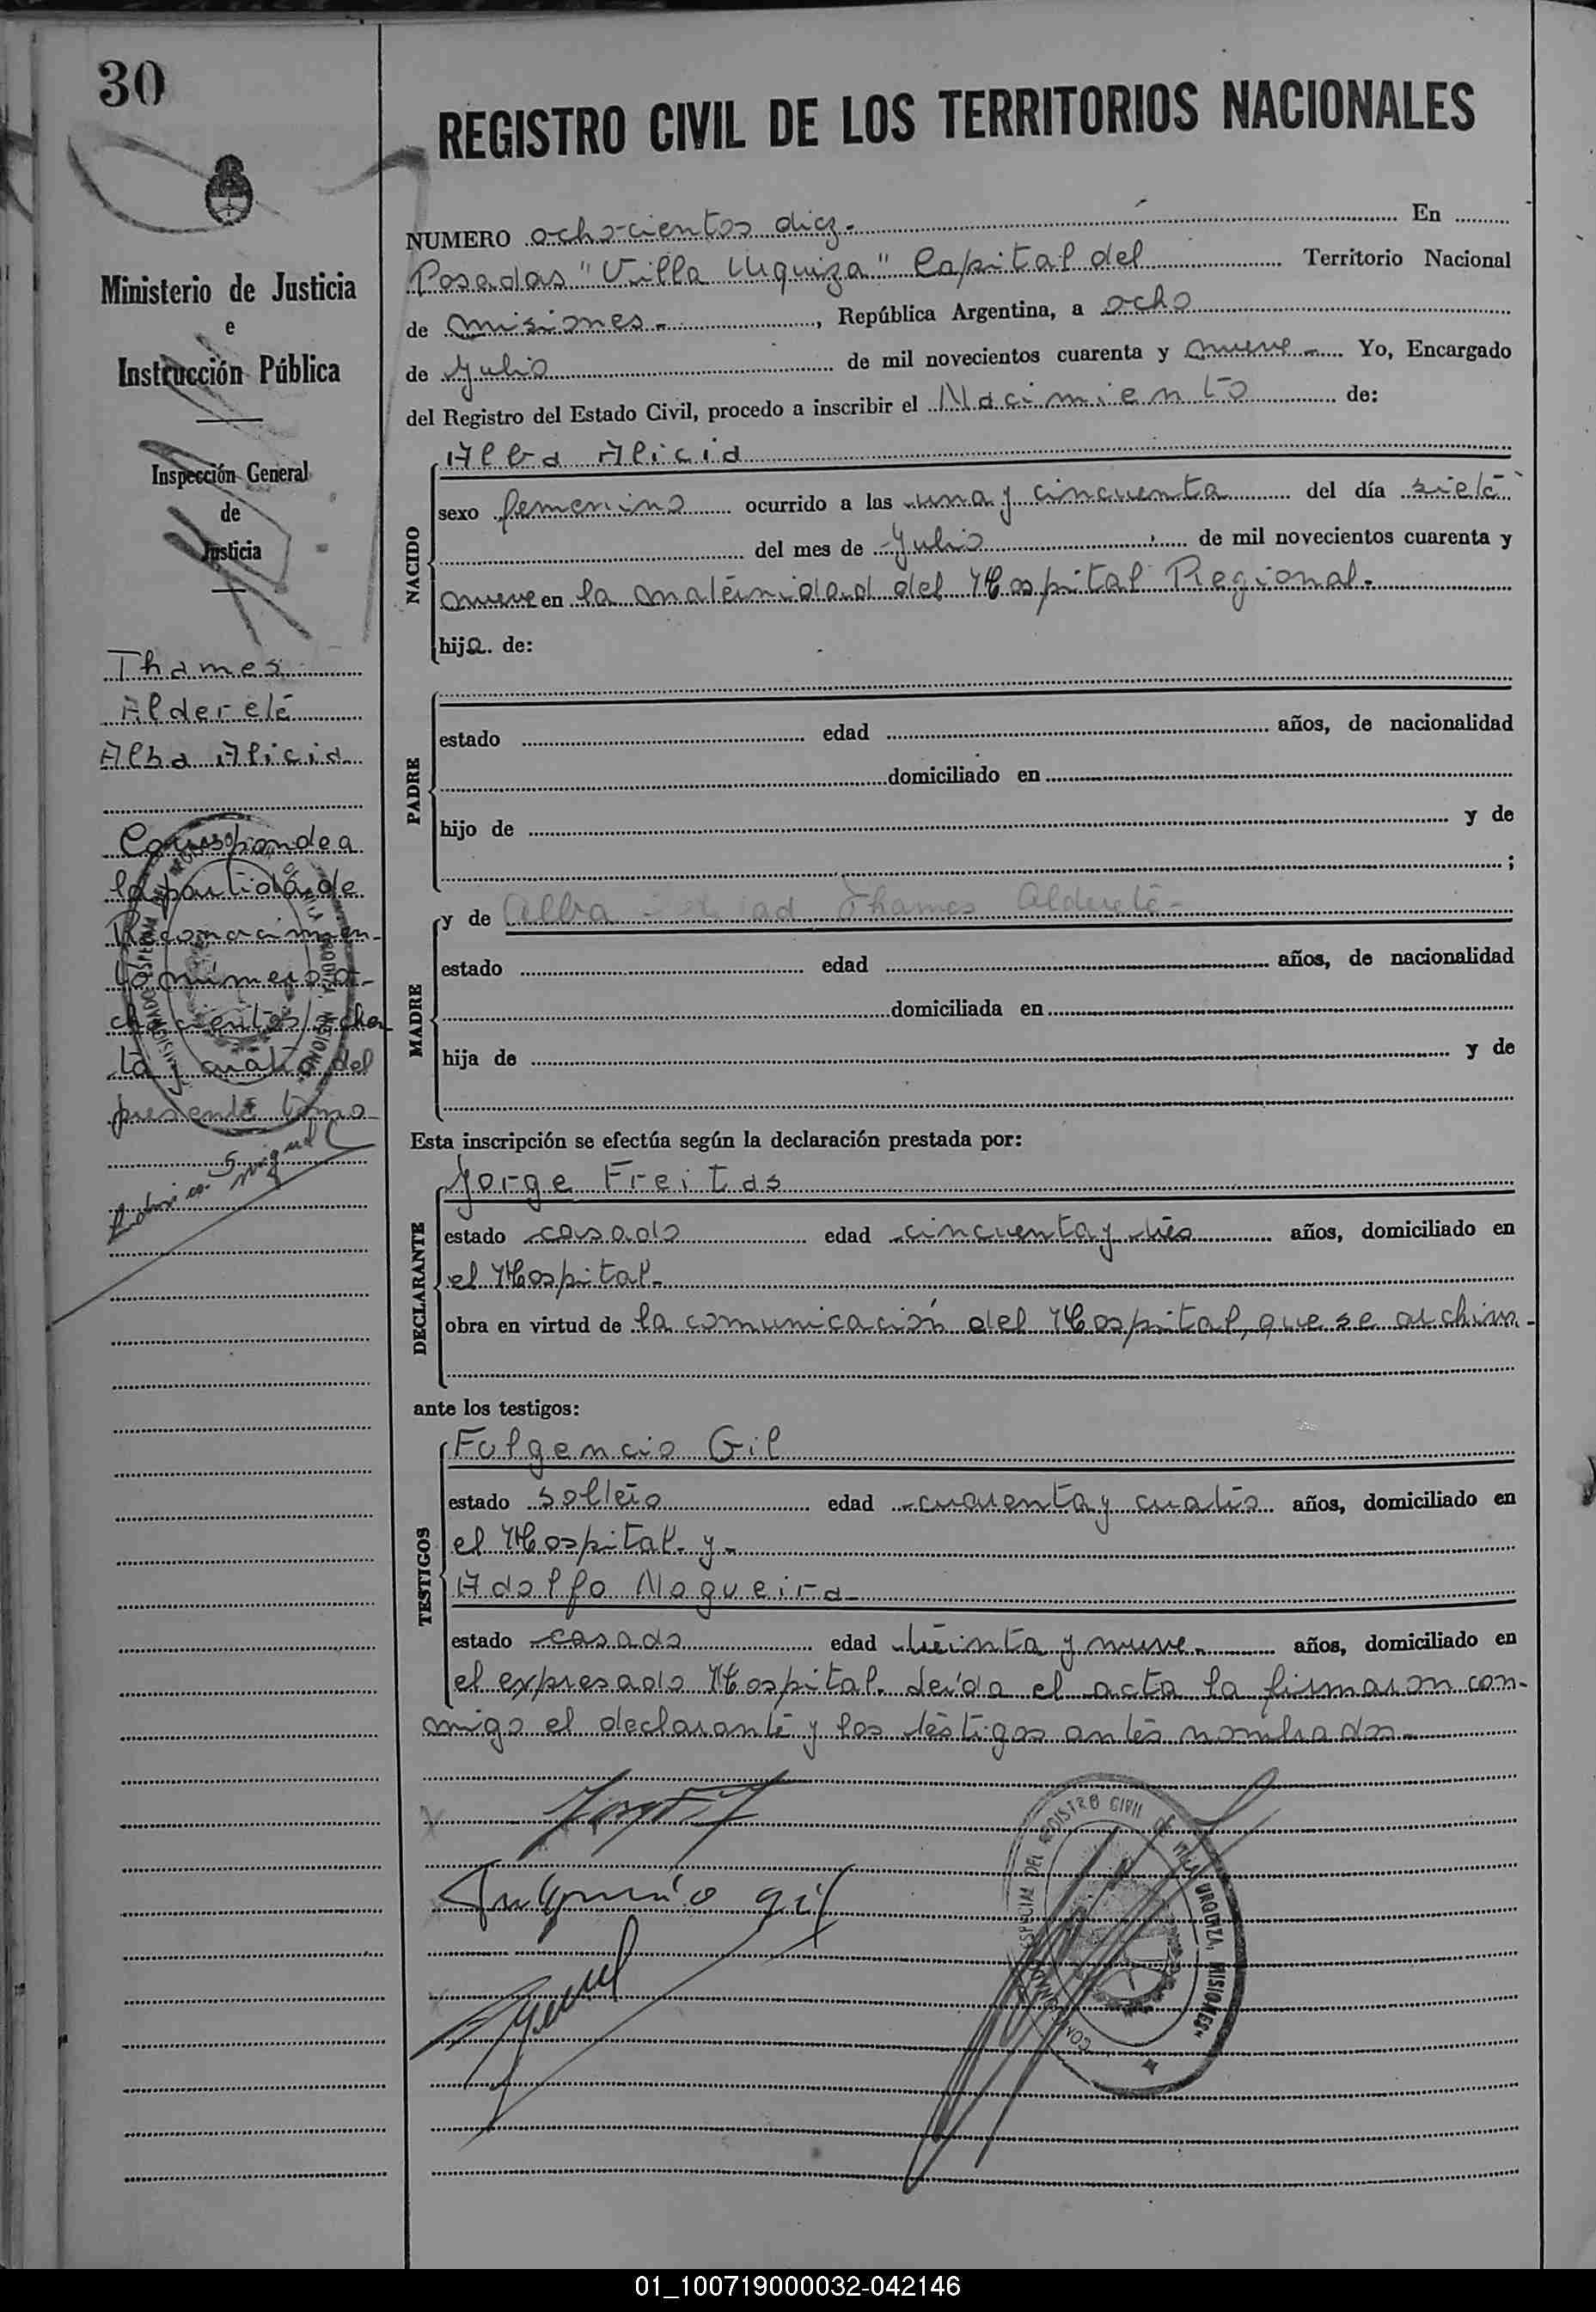 30
REGISTRO CIVIL DE LOS TERRITORIOS NACIONALES
Ministerio de Justicia
e
Instrucción Pública
Inspección General
de
Justicia
Thames
Alderete
Alba Alicia
Corresponde a
la partida de
Reconocimien-
to número o-
chocientos ochen
ta y cuatro del
presente tomo
NUMERO ochocientos diez. En
Posadas "Villa Urquiza" Capital del Territorio Nacional
de Misiones.-, República Argentina, a ocho
de Julio de mil novecientos cuarenta y nueve.- Yo, Encargado
del Registro del Estado Civil, procedo a inscribir el Nacimiento de:
NACIDO
Alba Alicia
sexo femenino ocurrido a las una y cincuenta del día siete
del mes de Julio de mil novecientos cuarenta y
nueve en la maternidad del Hospital Regional.-
hija. de:
PADRE
estado edad años, de nacionalidad
domiciliado en
hijo de y de
;
MADRE
y de Alba Thames Alderete-
estado edad años, de nacionalidad
domiciliada en
hija de y de
Esta inscripción se efectúa según la declaración prestada por:
DECLARANTE
Jorge Freitas
estado casado edad cincuenta y tres años, domiciliado en
el Hospital.-
obra en virtud de la comunicación del Hospital, que se archiva.-
ante los testigos:
TESTIGOS
Fulgencio Gil
estado soltero edad cuarenta y cuatro años, domiciliado en
el Hospital.- y.-
Adolfo Nogueira-
estado casado edad treinta y nueve.- años, domiciliado en
el expresado Hospital. Leída el acta la firmaron con-
migo el declarante y los testigos antes nombrados.-
Fulgencio gil
ESPECIAL DEL REGISTRO CIVIL DE VILLA URQUIZA, MISIONES
01_100719000032-042146